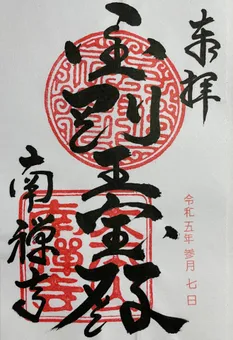 奉拝
金剛王宝殿
南禅寺
令和五年 参月 七 日